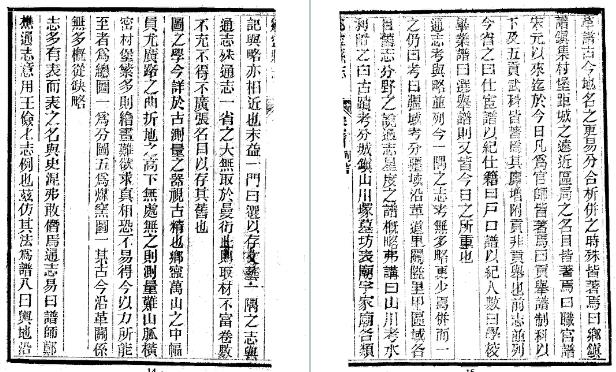 革譜古今域名之更易分合析併之時殊皆著焉曰鄉鎮
譜鎮集村堡距城之遠近區局之名目皆著焉曰職官譜
宋元以來迄於今日凡爲官師皆著焉曰貢舉譜制科以
下及五貢武科皆著焉其廩增附貢非貢舉也前志並列
今省之曰仕宦譜以紀仕籍曰戶口譜以紀人數曰學校
畢業譜曰選舉譜則又皆今日之所重也
通志考與略並列今一隅之志考無多略更少焉併而一
之仍曰考曰疆域考分疆域沿革道里關隘里甲區域各
目舊志分野之說通志星度之譜概略弗講曰山川考水
利附之曰古蹟考分城鎮山川塚墓坊表廟宇家廟各類
記與略亦相近也末益一門曰選以存文藝一隅之志與
通志殊通志一省之大無取於曼衍此則取材不富卷數
不充不得不廣張名目以存其舊也
圖之學今詳於古測量之器視古精也鄉寧萬山之中幅
員尤廣路之曲折地之高下無處無之則測量難山脈橫
密村堡繁多則繪畫難欲求真相恐不易得今以力所能
至者爲總圖一爲分圖五爲煤窰圖一其古今沿革關係
無多概從缺略
志多有表而表之名與史混弗敢僭焉通志易曰譜師鄭
樵通志意用王儉七志例也茲仿其法爲譜八曰輿地沿